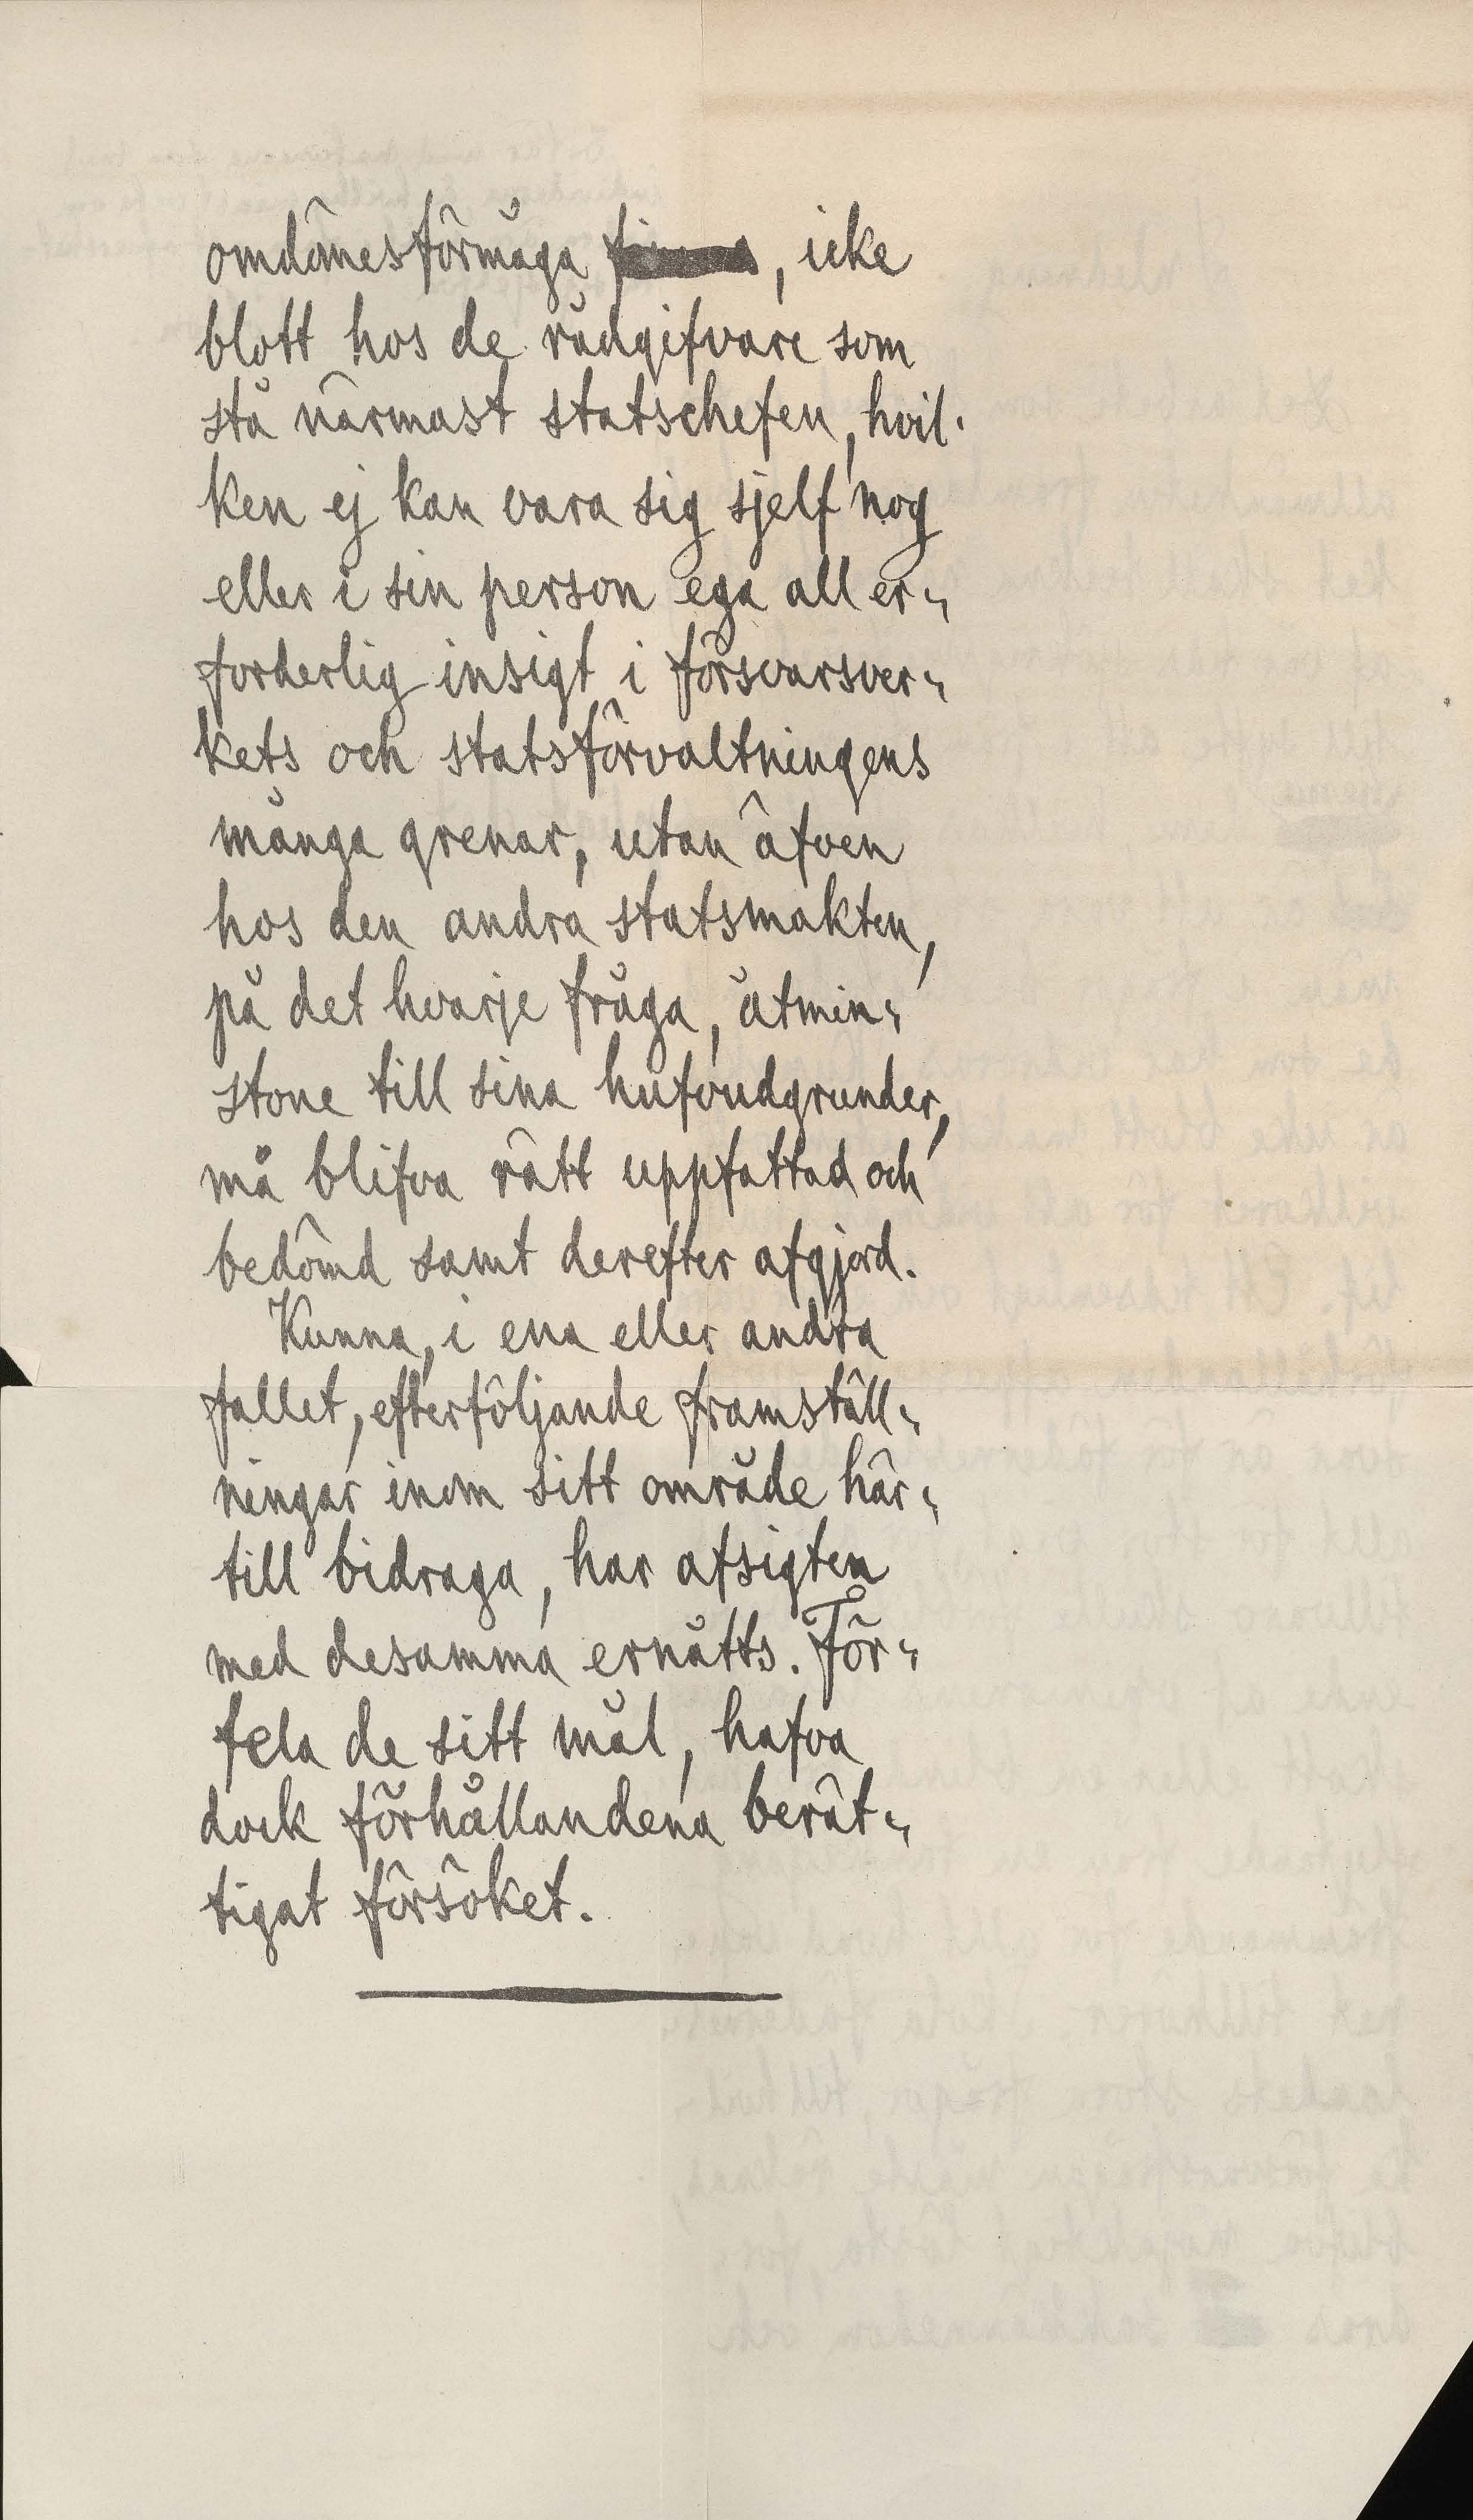 omdömesförmåga, icke
blott hos de rådgifvare som
stå närmast statschefen, hvil-
ken ej kan vara sig sjelf nog
eller i sin person ega all er-
forderlig insigt i försvarsver-
kets och statsförvaltningens
många grenar, utan äfven
hos den andra statsmakten,
på det hvarje fråga, åtmin-
stone till sina hufvudgrunder,
må blifva rätt uppfattad och
bedömd samt derefter afgjord.
Kunna, i ena eller andra
fallet, efterföljande framställ-
ningar inom sitt område här-
till bidraga, har afsigten
med desamma ernåtts. För-
fela de sitt mål, hafva
dock förhållandena berät-
tigat försöket.